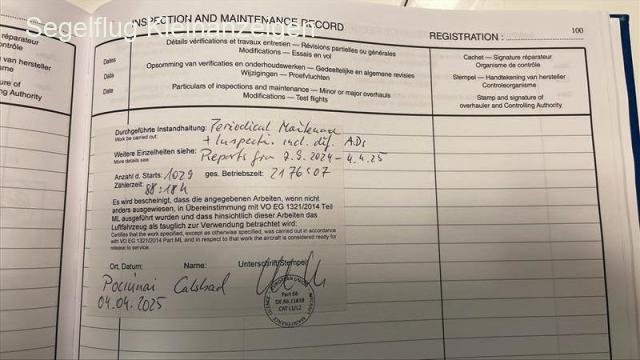 Segelflug Kleinanzeigen
INSPECTION AND MAINTENANCE RECORD
100
REGISTRATION :
Dates
Date
Date
Détails vérifications et travaux entretien – Révisions partielles ou générales
Modifications – Essais en vol
Opsomming van verificaties en onderhoudswerken – Gedeeltelijke en algemene revisies
Wijzigingen – Proefvluchten
Particulars of inspections and maintenance – Minor or major overhauls
Modifications – Test flights
Cachet – Signature réparateur
Organisme de contrôle
Stempel – Handtekening van hersteller
Controleorganisme
Stamp and signature of
overhauler and Controlling Authority
réparateur
contrôle
van hersteller
anisme
ure of
g Authority
Durchgeführte Instandhaltung: Periodical
Work be carried out:
+ Inspectn. incl. dif. A.Ds
Weitere Einzelheiten siehe: Reports from 7.9.2024 – 4.4.25
More details see:
Anzahl d. Starts: 1029 ges. Betriebszeit: 2176:07
Zählerzeit: 88:18h
Es wird bescheinigt, dass die angegebenen Arbeiten, wenn nicht
anders ausgewiesen, in Übereinstimmung mit VO EG 1321/2014 Teil
ML ausgeführt wurden und dass hinsichtlich dieser Arbeiten das
Luftfahrzeug als tauglich zur Verwendung betrachtet wird:
Certifies that the work specified, except as otherwise specified, was carried out in accordance
with VO EG 1321/2014 Part ML and in respect to that work the aircraft is considered ready for
release to service.
Ort, Datum: Name: Unterschrift/Stempel
04.04.2025
Part 66